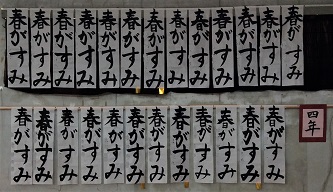 春がすみ
春がすみ
春がすみ
春がすみ
春がすみ
春がすみ
春がすみ
春がすみ
春がすみ
春がすみ
春がすみ
春がすみ
春がすみ
四年
春がすみ
春がすみ
春がすみ
春がすみ
春がすみ
春がすみ
春がすみ
春がすみ
春がすみ
春がすみ
春がすみ
春がすみ